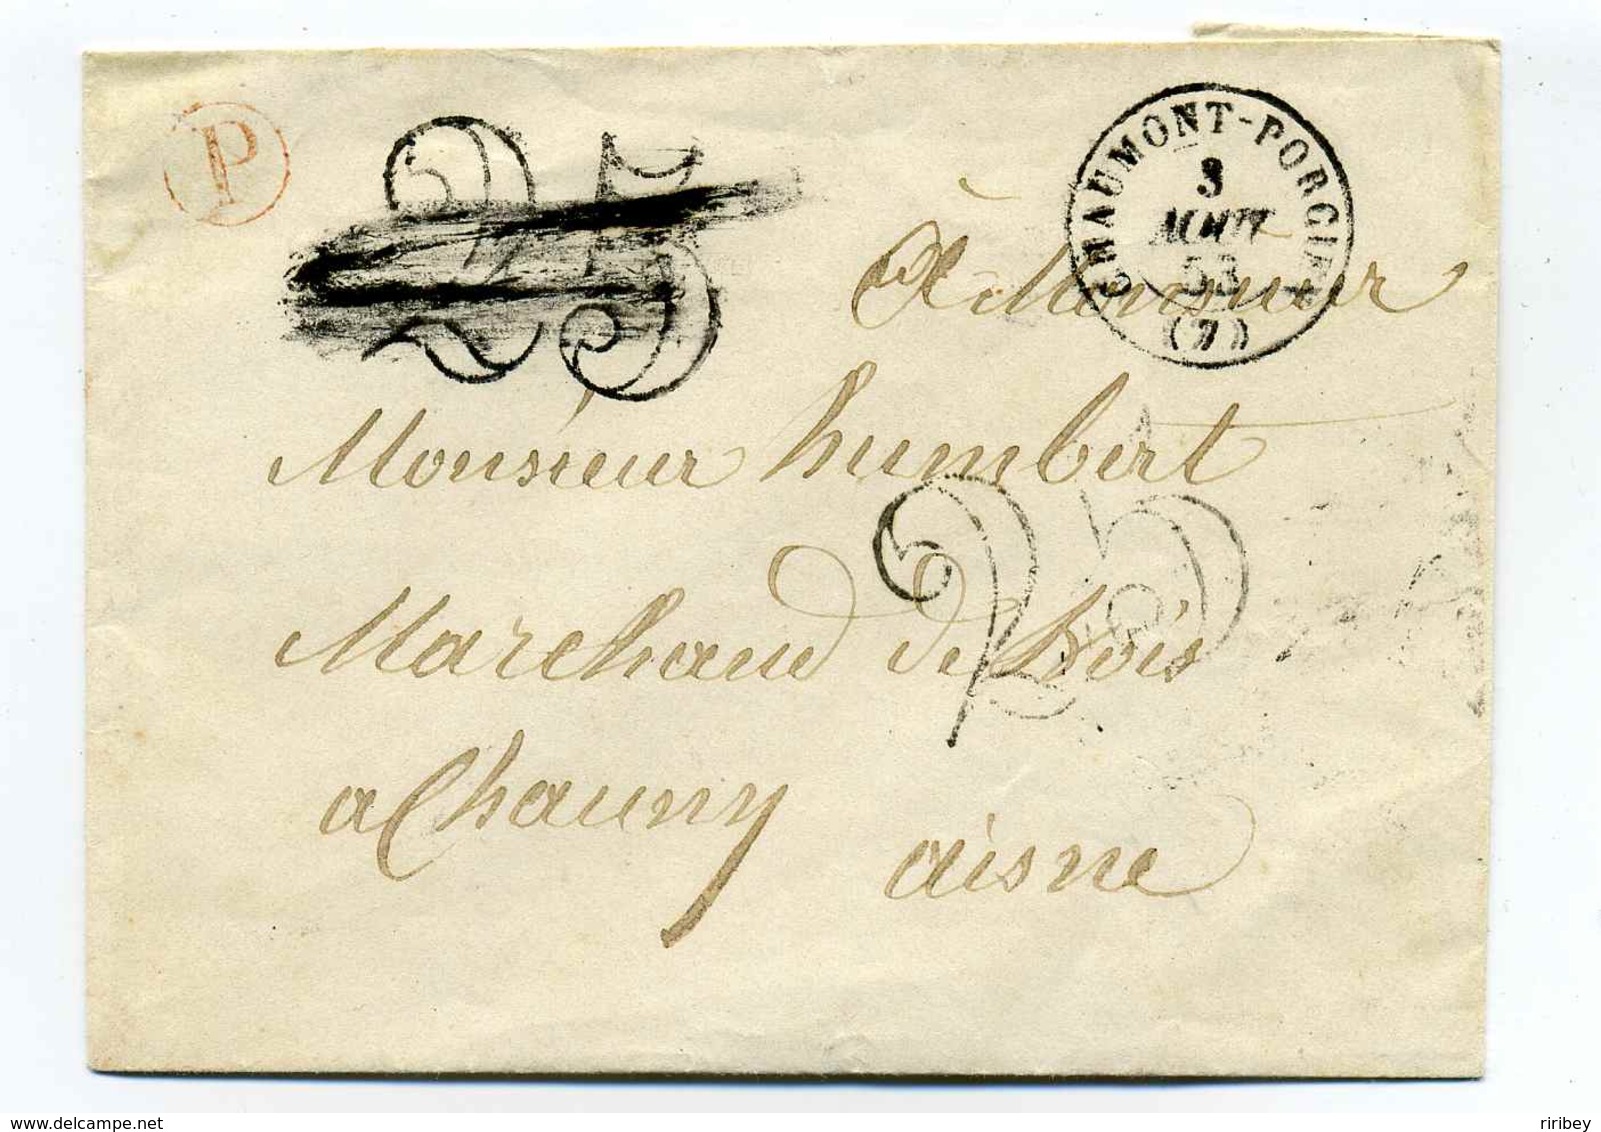 P
25
CHAUMONT-PORCIEN
3
AOUT
53
(7)
à Monsieur
Monsieur humbert
25
Marchand de bois
a Chauny
aisne
delcampe.net
riribey